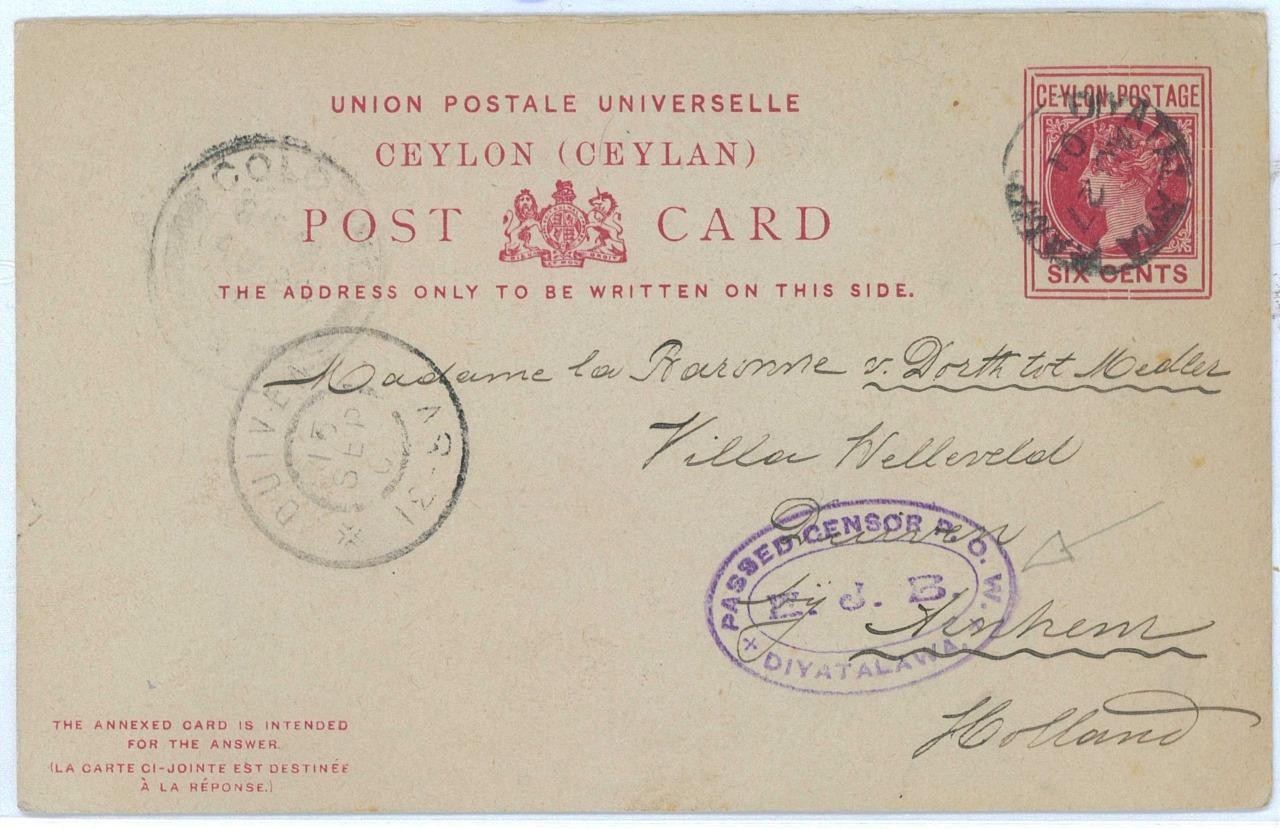 UNION POSTALE UNIVERSELLE
CEYLON (CEYLAN)
POST CARD
THE ADDRESS ONLY TO BE WRITTEN ON THIS SIDE.
CEYLON POSTAGE
SIX CENTS
COLO
DUIVEN
8-12 V
13
SEP
Madame la Baronne v. Dorth tot Medler
Villa Welleveld
Duiven
bij Arnhem
Holland
PASSED CENSOR P.O.W.
E. J. B.
DIYATALAWA.
THE ANNEXED CARD IS INTENDED
FOR THE ANSWER.
(LA CARTE CI-JOINTE EST DESTINÉE
À LA RÉPONSE.)